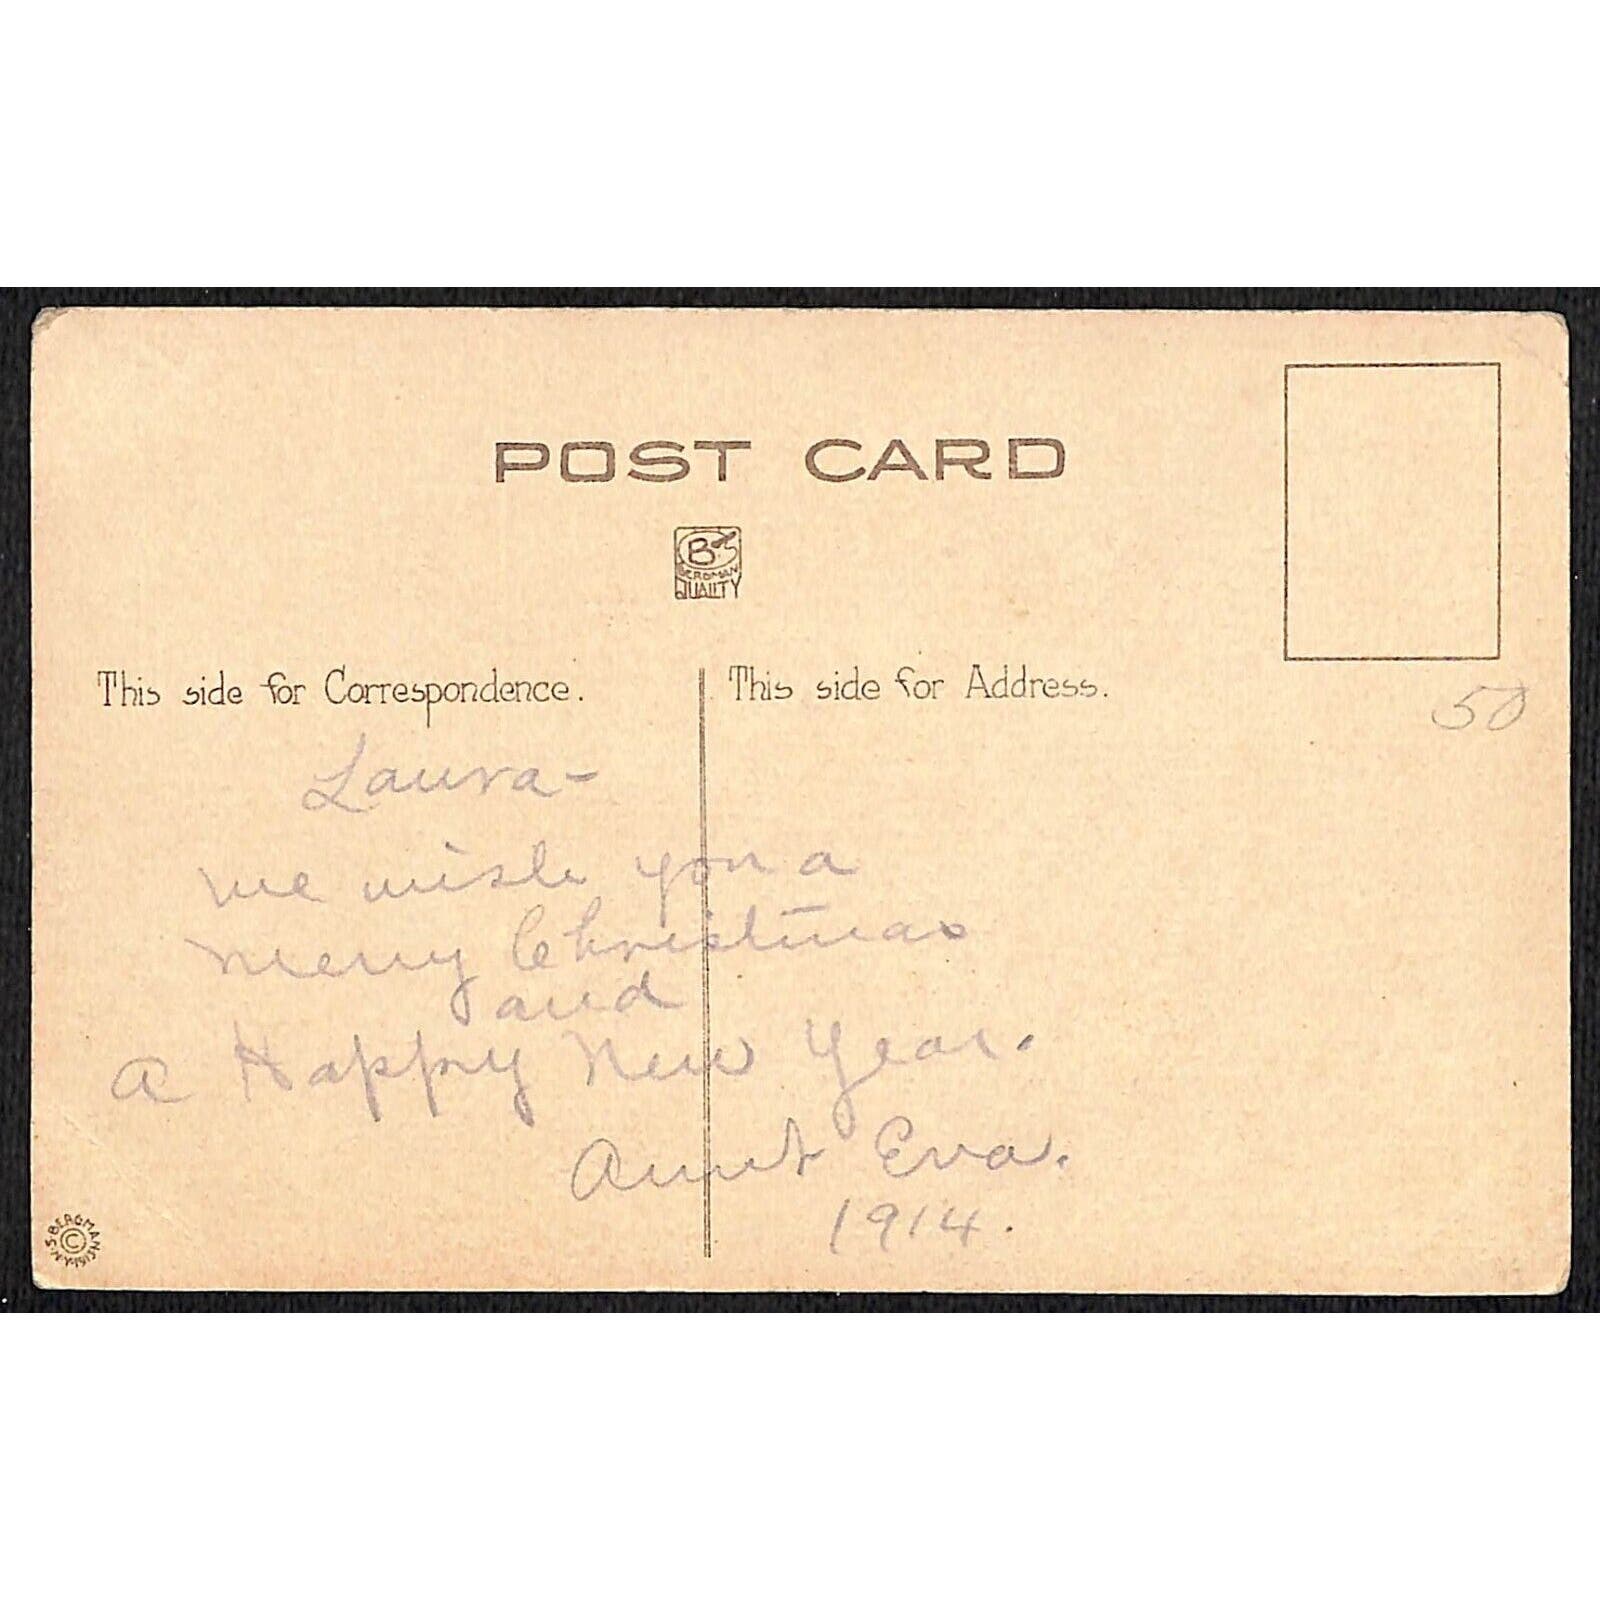 POST CARD
BS
BERGMAN
QUALITY
This side for Correspondence.
This side for Address.
50
Laura-
we wish you a
merry Christmas
and
a Happy New Year.
Aunt Eva.
1914.
S. BERGMAN
©
N.Y.